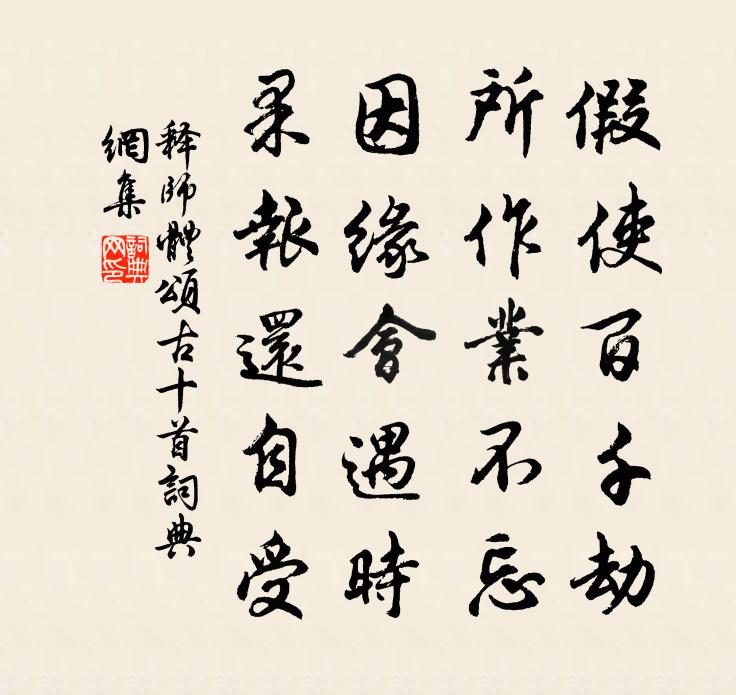 假使百千劫
所作業不忘
因緣會遇時
果報還自受
释師體頌古十首詞典
網集
詞典
网印